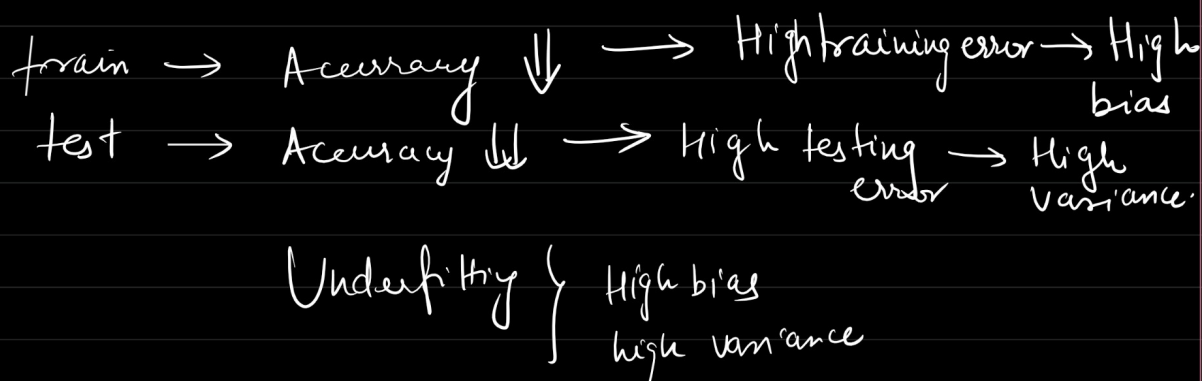 train → Accuracy ⇓ → High training error → High bias
test → Accuracy ⇓ → High testing error → High variance.
Underfitting } High bias
high variance